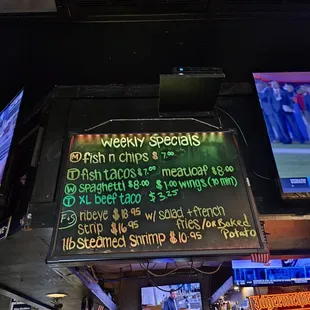 weekly specials
M fish n chips $7.00
T fish tacos $7.00 meatloaf $8.00
W spaghetti $8.00 $1.00 wings (10 min)
T XL beef taco $3.25
F/S ribeye $18.95 w/ salad + french
strip $16.95 fries or Baked
1lb Steamed Shrimp $10.95 Potato